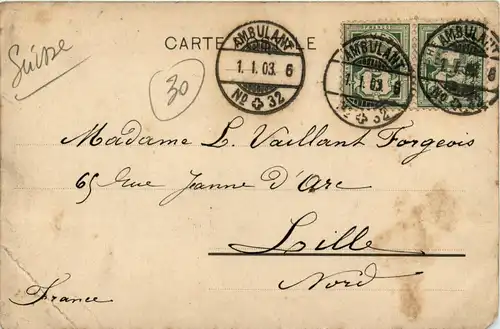 Suisse
30
CARTE
AMBULANT
1. I. 03. 6
No 32
AMBULANT
1. I. 03. 6
No 32
AMBULANT
No 32
Madame L. Vaillant Forgeois
65 Rue Jeanne d'Arc
Lille
Nord
France